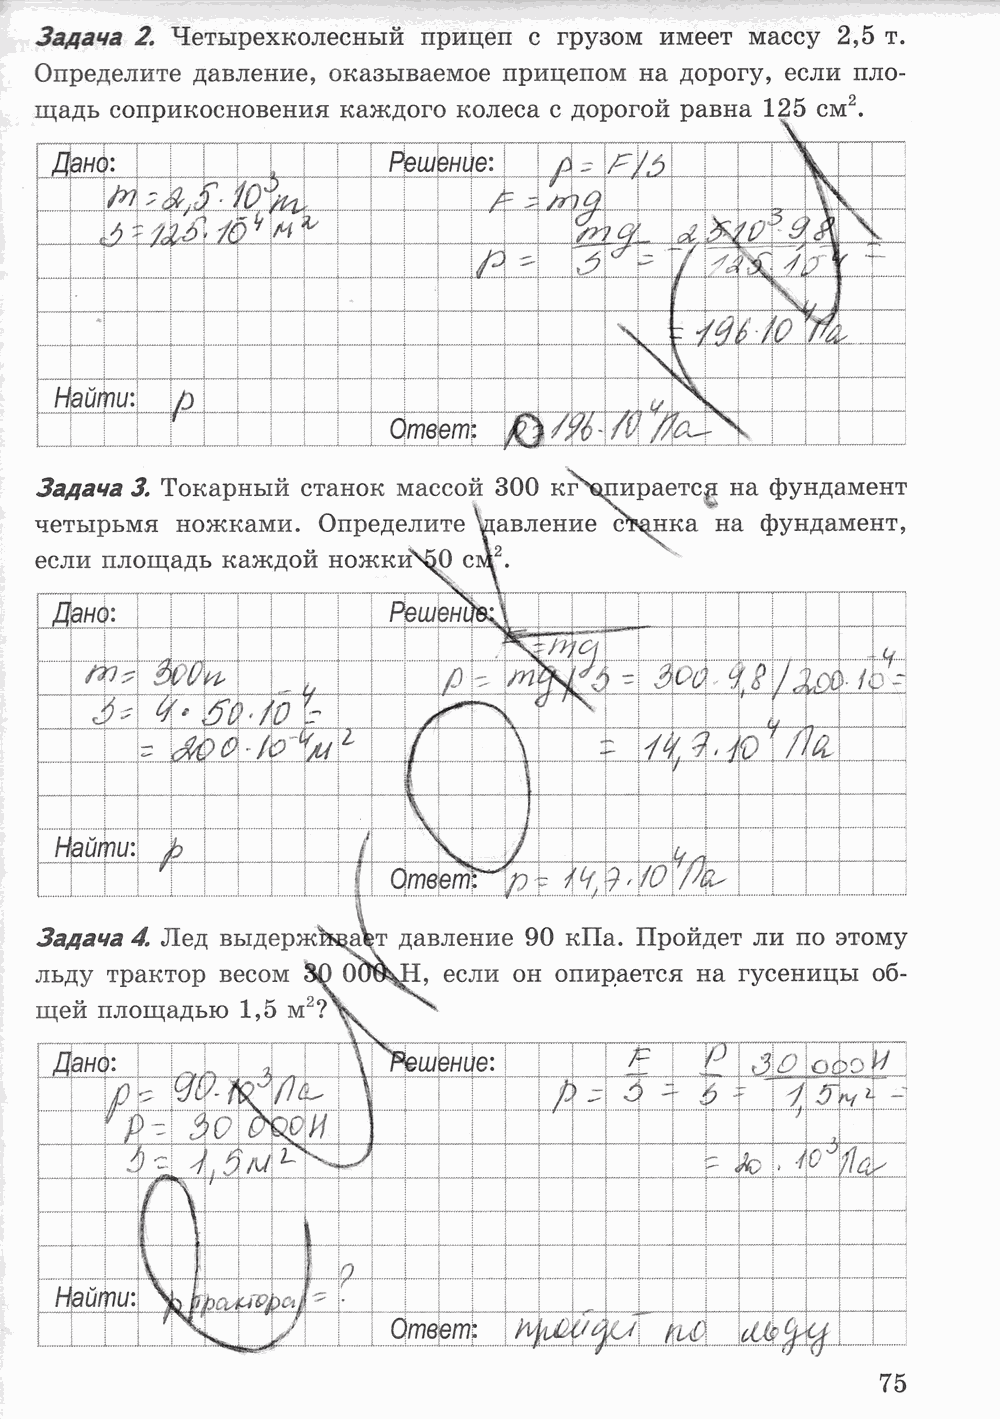 Задача 2. Четырехколесный прицеп с грузом имеет массу 2,5 т.
Определите давление, оказываемое прицепом на дорогу, если пло-
щадь соприкосновения каждого колеса с дорогой равна 125 см².
Дано:
m = 2,5·10³ т
S = 125·10⁻⁴ м²
Найти: p
Решение: p = F/S
F = mg
p = mg/S = 2,5·10³·9,8/125·10⁻⁴ =
= 196·10⁴ Па
Ответ: p = 196·10⁴ Па
Задача 3. Токарный станок массой 300 кг опирается на фундамент
четырьмя ножками. Определите давление станка на фундамент,
если площадь каждой ножки 50 см².
Дано:
m = 300
S = 4·50·10⁻⁴ =
= 200·10⁻⁴ м²
Найти: p
Решение:
F = mg
p = mg/S = 300·9,8/200·10⁻⁴ =
= 14,7·10⁴ Па
Ответ: p = 14,7·10⁴ Па
Задача 4. Лед выдерживает давление 90 кПа. Пройдет ли по этому
льду трактор весом 30 000 Н, если он опирается на гусеницы об-
щей площадью 1,5 м²?
Дано:
p = 90·10³ Па
P = 30 000 Н
S = 1,5 м²
Найти: p трактора = ?
Решение:
p = F/S = P/S = 30 000 Н/1,5 м² =
= 20·10³ Па
Ответ: пройдет по льду
75